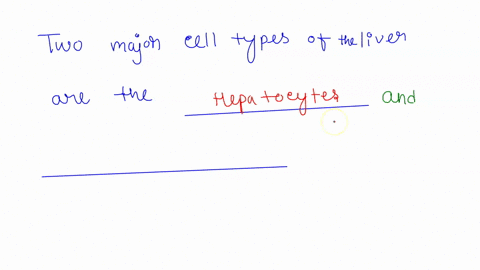 Two major cell types of the liver
are the Hepatocytes and